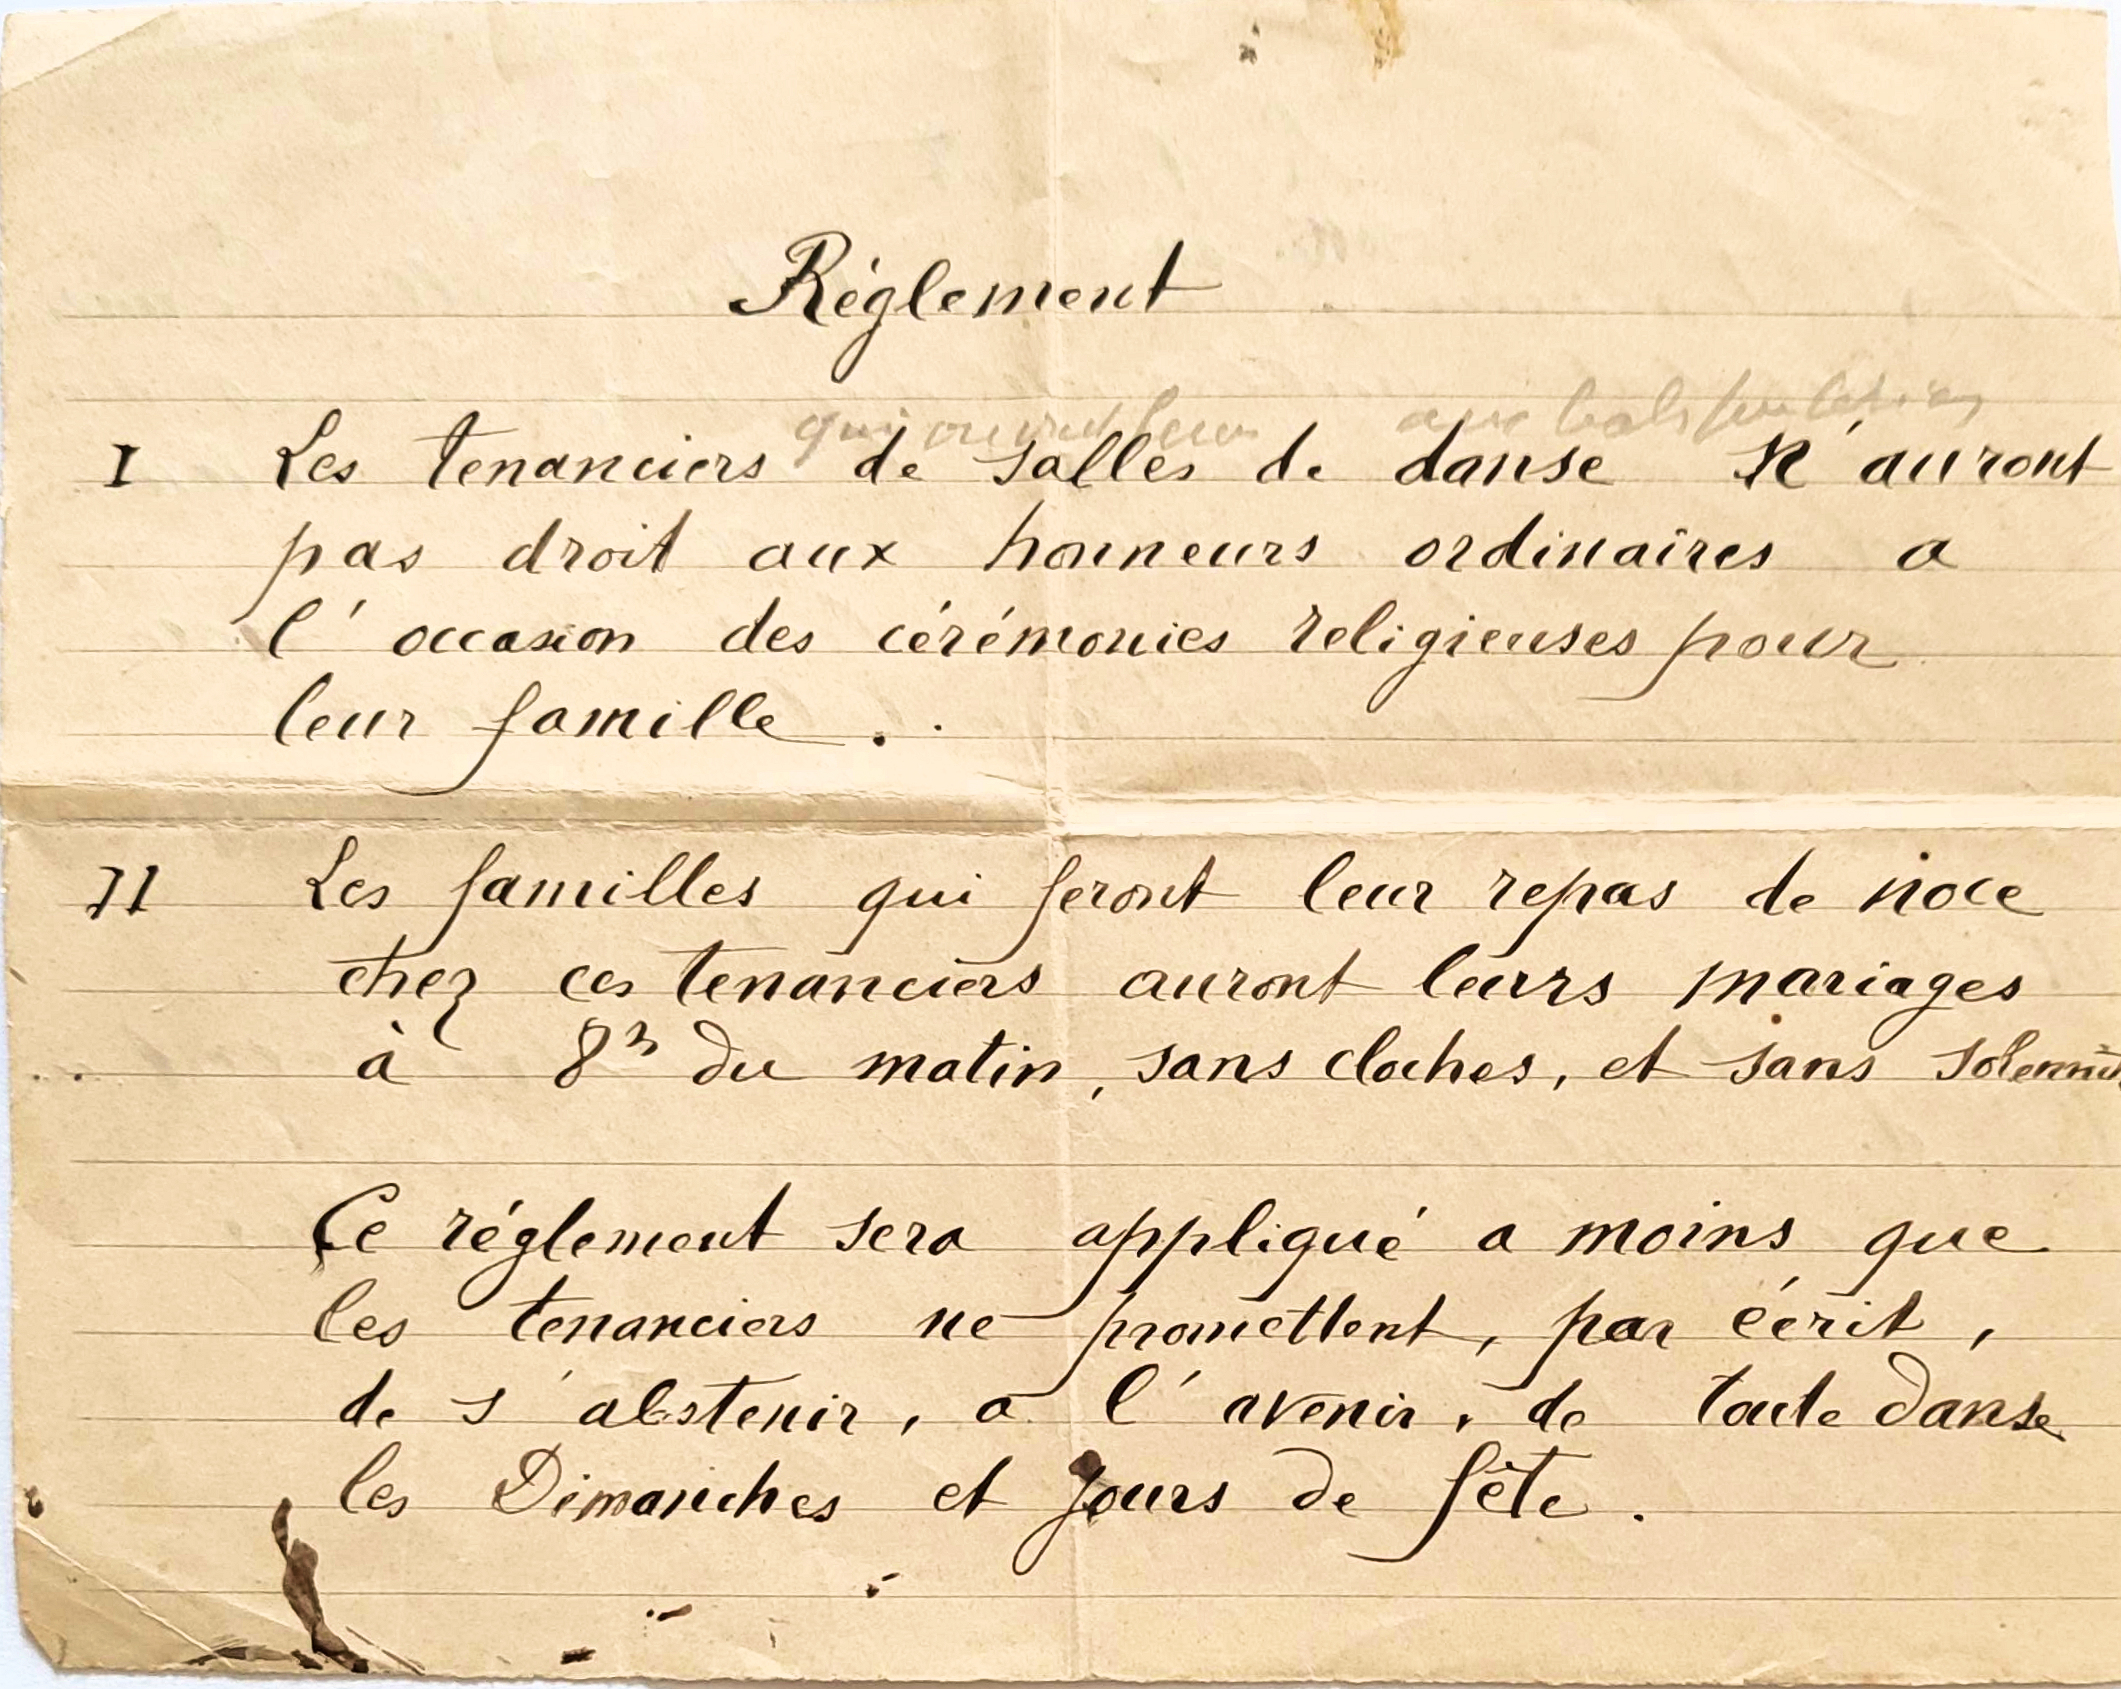 Réglement
qui ouvrent leur aux bals
I Les tenanciers de salles de danse n'auront
pas droit aux honneurs ordinaires a
l'occasion des cérémonies religieuses pour
leur famille .
II Les familles qui feront leur repas de noce
chez ces tenanciers auront leurs mariages
à 8h du matin, sans cloches, et sans
Ce réglement sera appliqué a moins que
les tenanciers ne promettent, par écrit,
de s'abstenir, a l'avenir, de toute danse
les Dimanches et Jours de fête.